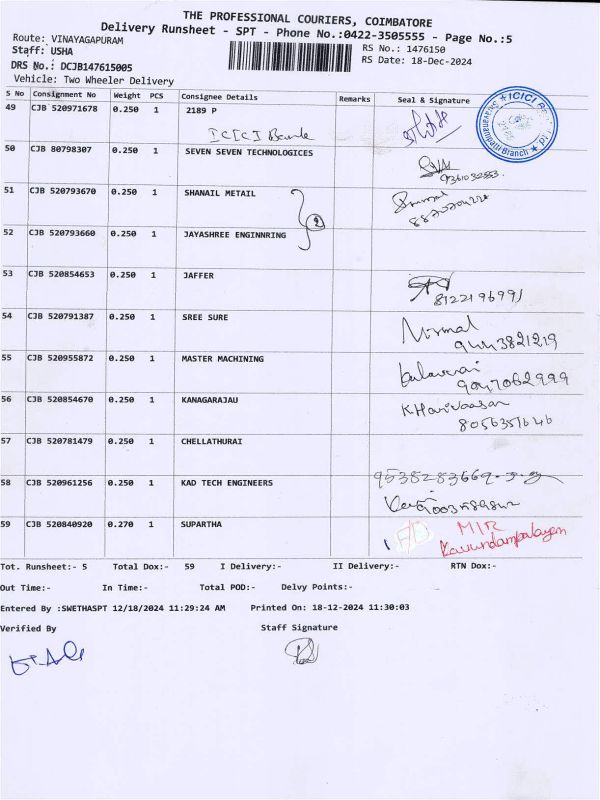 THE PROFESSIONAL COURIERS, COIMBATORE
Delivery Runsheet - SPT - Phone No.:0422-3505555 - Page No.:5
Route: VINAYAGAPURAM
RS No.: 1476150
Staff: USHA
RS Date: 18-Dec-2024
DRS No.: DCJB147615005
Vehicle: Two Wheeler Delivery
S No Consignment No Weight PCS Consignee Details Remarks Seal & Signature
49 CJB 520971678 0.250 1 2189 P
ICICI Bank
ICICI
Branch
50 CJB 80798307 0.250 1 SEVEN SEVEN TECHNOLOGICES
9361032553.
51 CJB 520793670 0.250 1 SHANAIL METAIL
2
52 CJB 520793660 0.250 1 JAYASHREE ENGINNRING
53 CJB 520854653 0.250 1 JAFFER
8122196991
54 CJB 520791387 0.250 1 SREE SURE
Nirmal
9443821219
55 CJB 520955872 0.250 1 MASTER MACHINING
9047062999
56 CJB 520854670 0.250 1 KANAGARAJAU
K Harivaasan
8056351646
57 CJB 520781479 0.250 1 CHELLATHURAI
9538283669
58 CJB 520961256 0.250 1 KAD TECH ENGINEERS
59 CJB 520840920 0.270 1 SUPARTHA
MIR
Kavundampalayam
Tot. Runsheet:- 5 Total Dox:- 59 I Delivery:- II Delivery:- RTN Dox:-
Out Time:- In Time:- Total POD:- Delvy Points:-
Entered By :SWETHASPT 12/18/2024 11:29:24 AM Printed On: 18-12-2024 11:30:03
Verified By Staff Signature